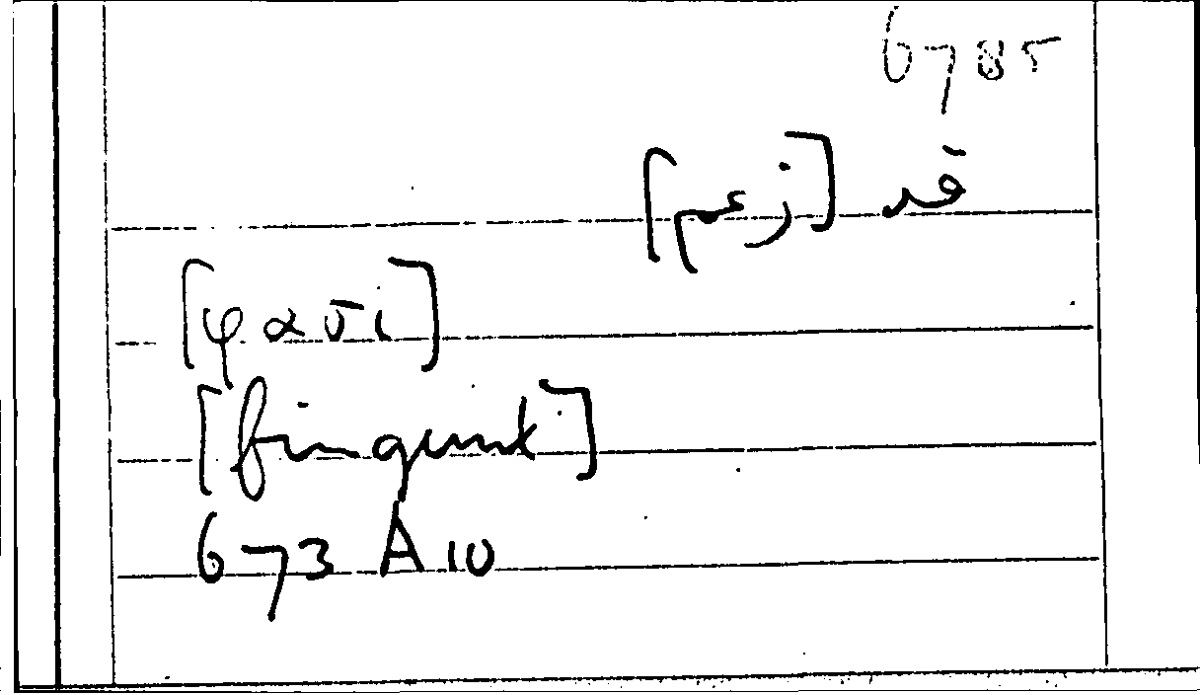 6785
قد [زعم]
[φασι]
[fingunt]
673 A 10